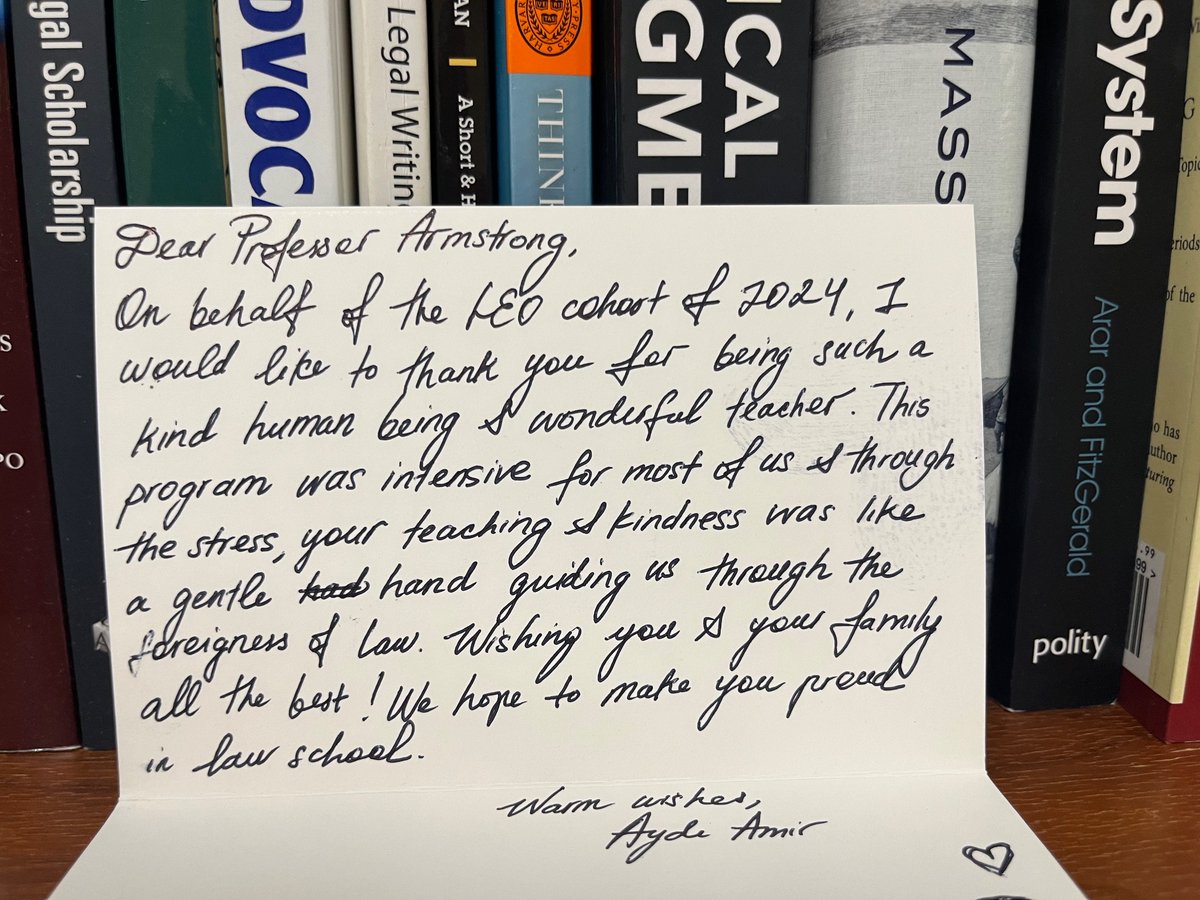 gal Scholarship
DVOCA
Legal Writing
AN
A Short & H
THIN
ICAL
GME
MASS
System
Arar and FitzGerald
polity
S
K
PO
G
Topic
eriods
of the
o has
uthor
turing
.99
99 >
Dear Professor Armstrong,
On behalf of the LEO cohort of 2024, I
would like to thank you for being such a
kind human being & wonderful teacher. This
program was intensive for most of us & through
the stress, your teaching & kindness was like
a gentle had hand guiding us through the
foreigness of law. Wishing you & your family
all the best! We hope to make you proud
in law school.
Warm wishes,
Ayde Amir